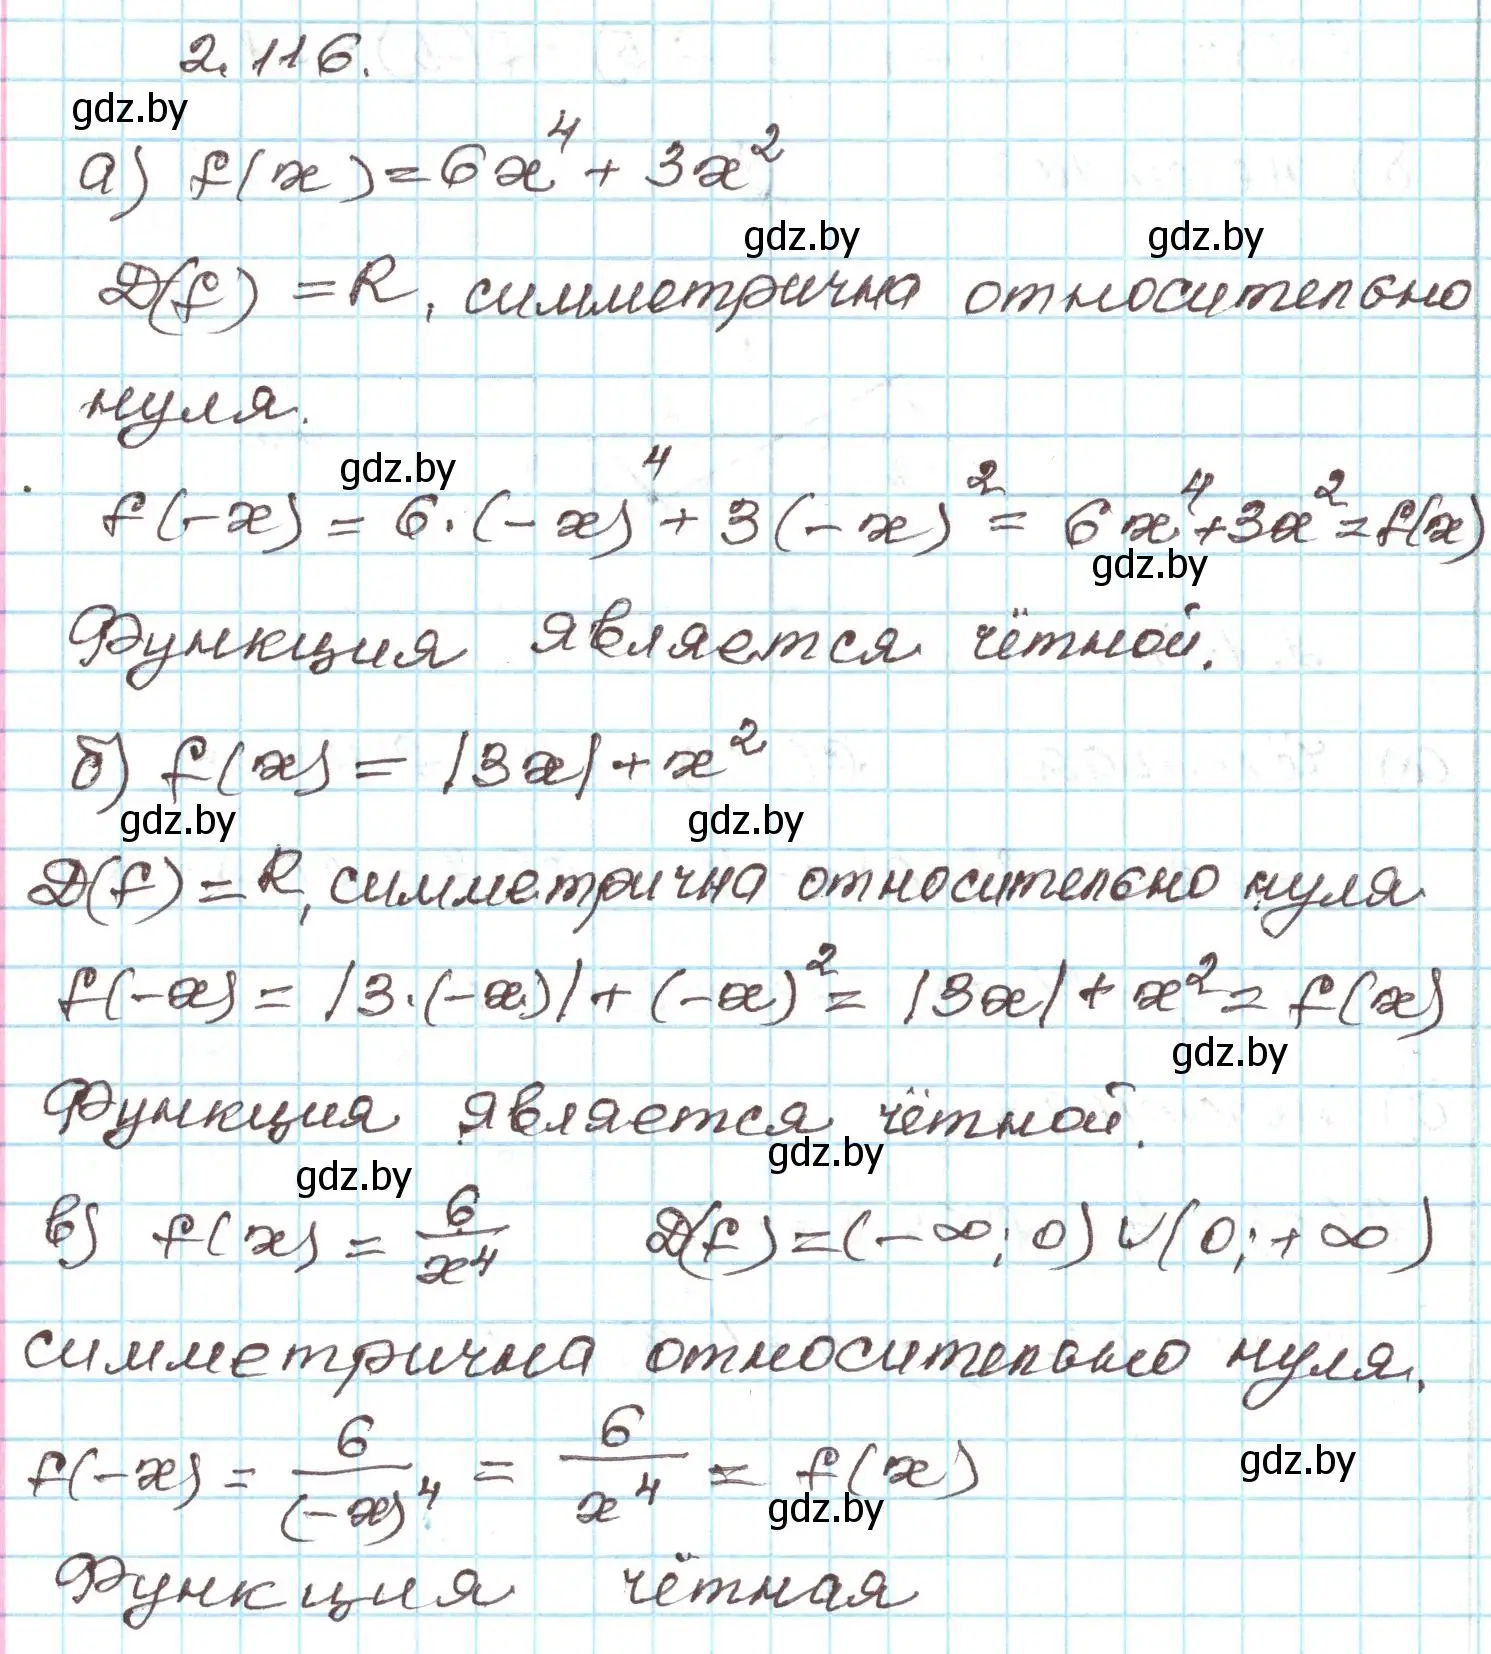 2.116.
gdz.by
а) f(x) = 6x⁴ + 3x²
gdz.by gdz.by
D(f) = R, симметрична относительно
нуля.
gdz.by
f(-x) = 6·(-x)⁴ + 3(-x)² = 6x⁴ + 3x² = f(x)
gdz.by
Функция является чётной.
б) f(x) = |3x| + x²
gdz.by gdz.by
D(f) = R, симметрична относительно нуля
f(-x) = |3·(-x)| + (-x)² = |3x| + x² = f(x)
gdz.by
Функция является чётной.
gdz.by gdz.by
в) f(x) = 6/x⁴ D(f) = (-∞; 0) ∪ (0; +∞)
симметрична относительно нуля.
f(-x) = 6/(-x)⁴ = 6/x⁴ = f(x)
gdz.by gdz.by
Функция чётная